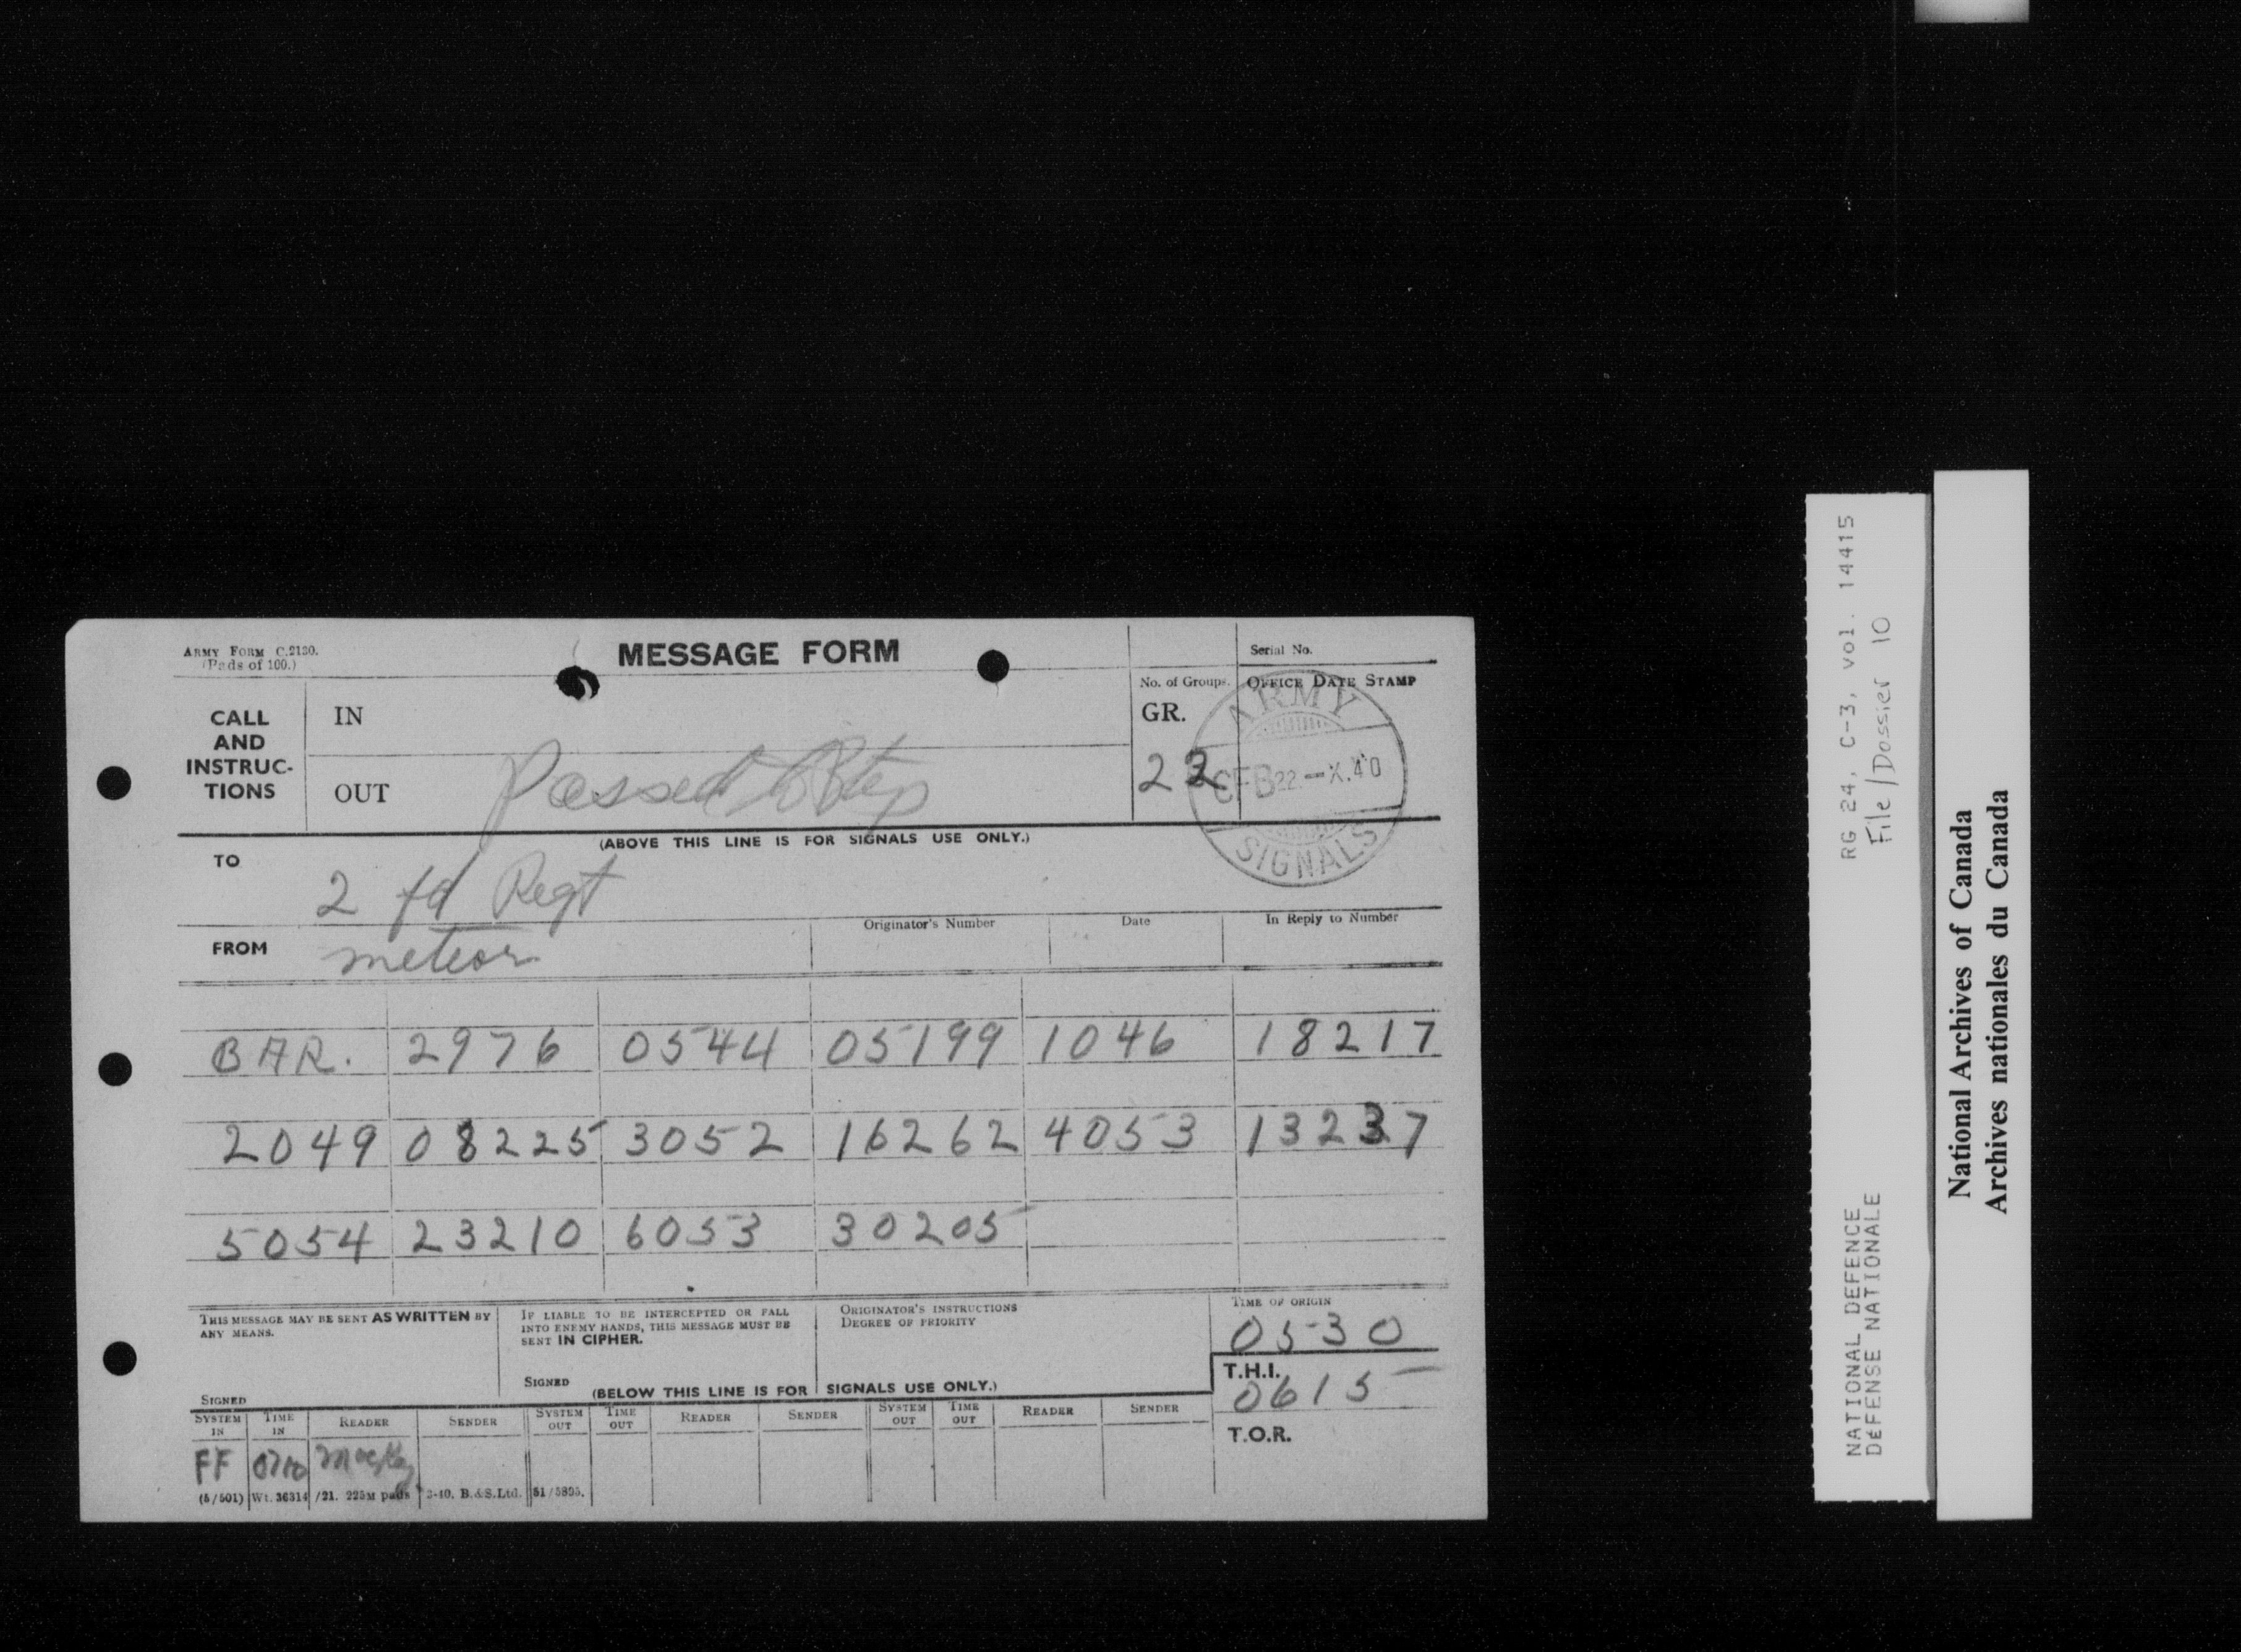 ARMY FORM C.2130.
(Pads of 100.)
MESSAGE FORM
Serial No.
CALL AND INSTRUC-TIONS
IN
No. of Groups.
OFFICE DATE STAMP
GR.
22
ARMY
22-X.40
SIGNALS
OUT
Passed
(ABOVE THIS LINE IS FOR SIGNALS USE ONLY.)
TO
2 fd Regt
FROM
meteor
Originator's Number
Date
In Reply to Number
BAR. 2976 0544 05199 1046 18217
2049 08225 3052 16262 4053 13237
5054 23210 6053 30205
THIS MESSAGE MAY BE SENT AS WRITTEN BY
ANY MEANS.
SIGNED
IF LIABLE TO BE INTERCEPTED OR FALL
INTO ENEMY HANDS, THIS MESSAGE MUST BE
SENT IN CIPHER.
SIGNED
ORIGINATOR'S INSTRUCTIONS
DEGREE OF PRIORITY
TIME OF ORIGIN
0530
T.H.I.
0615
T.O.R.
(BELOW THIS LINE IS FOR SIGNALS USE ONLY.)
SYSTEM IN TIME IN READER SENDER SYSTEM OUT TIME OUT READER SENDER SYSTEM OUT TIME OUT READER SENDER
FF 0710
(5/501) Wt. 36314 /21. 225M pads 2-40. B.&S.Ltd. 51/5895.
RG 24, C-3, vol. 14415
File/Dossier 10
NATIONAL DEFENCE
DÉFENSE NATIONALE
National Archives of Canada
Archives nationales du Canada